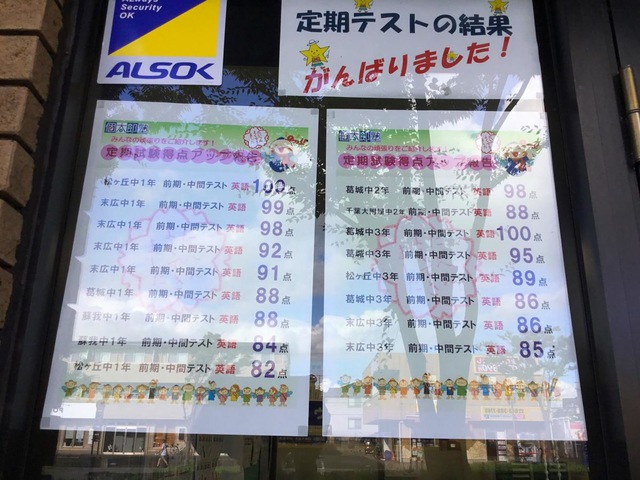 Always
Security
OK
ALSOK
定期テストの結果
がんばりました!
みんなの頑張りをご紹介します!
定期試験得点アップ報告
松ヶ丘中1年 前期・中間テスト 英語 100点
末広中1年 前期・中間テスト 英語 99点
末広中1年 前期・中間テスト 英語 98点
末広中1年 前期・中間テスト 英語 92点
末広中1年 前期・中間テスト 英語 91点
葛城中1年 前期・中間テスト 英語 88点
蘇我中1年 前期・中間テスト 英語 88点
蘇我中1年 前期・中間テスト 英語 84点
松ヶ丘中1年 前期・中間テスト 英語 82点
みんなの頑張りをご紹介します!
定期試験得点アップ報告
葛城中2年 前期・中間テスト 英語 98点
千葉大附属中2年 前期・中間テスト 英語 88点
葛城中3年 前期・中間テスト 英語 100点
葛城中3年 前期・中間テスト 英語 95点
松ヶ丘中3年 前期・中間テスト 英語 89点
葛城中3年 前期・中間テスト 英語 86点
末広中3年 前期・中間テスト 英語 86点
末広中3年 前期・中間テスト 英語 85点